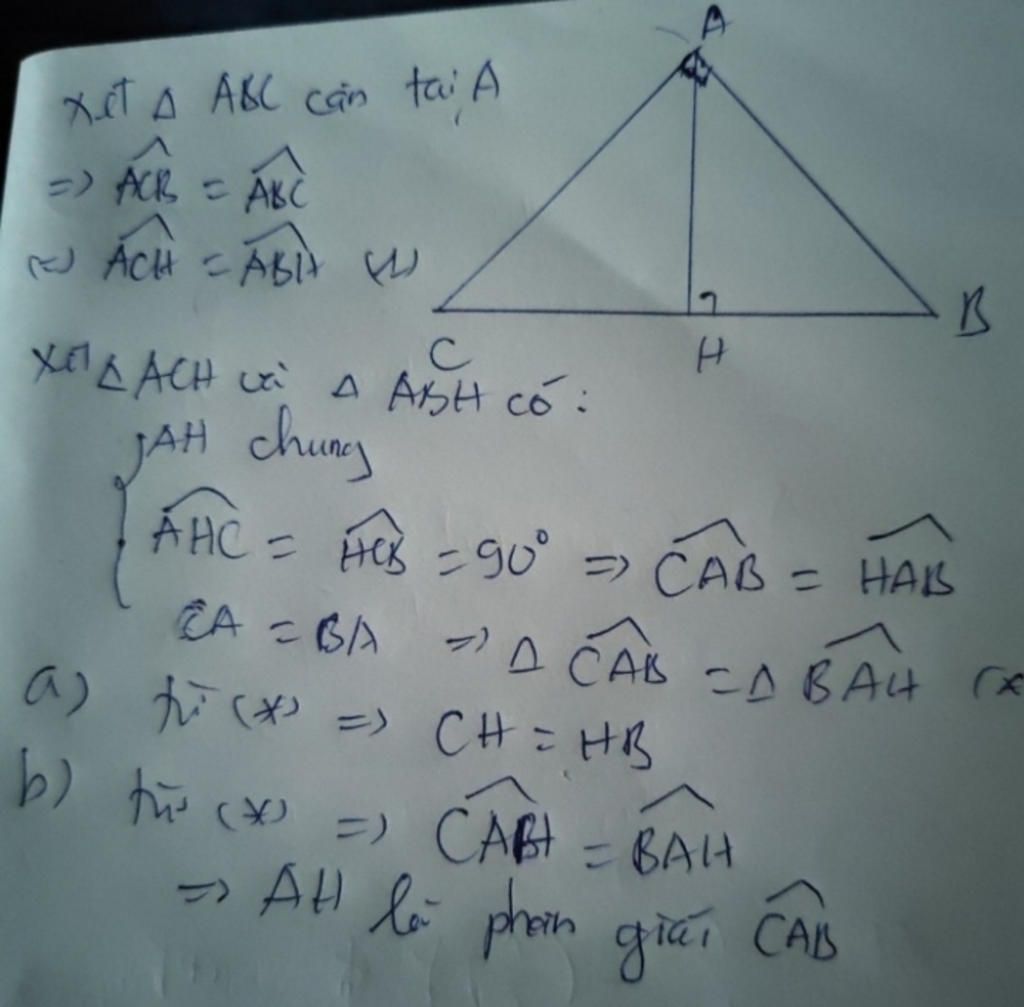 A
Xét Δ ABC cân tại A
=> \widehat{ACB} = \widehat{ABC}
(=) \widehat{ACH} = \widehat{ABH} (1)
C
H
B
Xét Δ ACH và Δ ABH có:
AH chung
\widehat{AHC} = \widehat{HCB} = 90° => \widehat{CAB} = \widehat{HAB}
CA = BA => Δ \widehat{CAB} = Δ \widehat{BAH} (*
a) từ (*) => CH = HB
b) từ (*) => \widehat{CABH} = \widehat{BAH}
=> AH là phân giác \widehat{CAB}